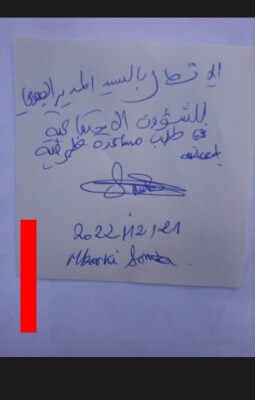 الاتصال بالسيد المدير الجهوي
للشؤون الاجتماعية
في طلب مساعدة ظرفية
2022/12/21
Mbarki